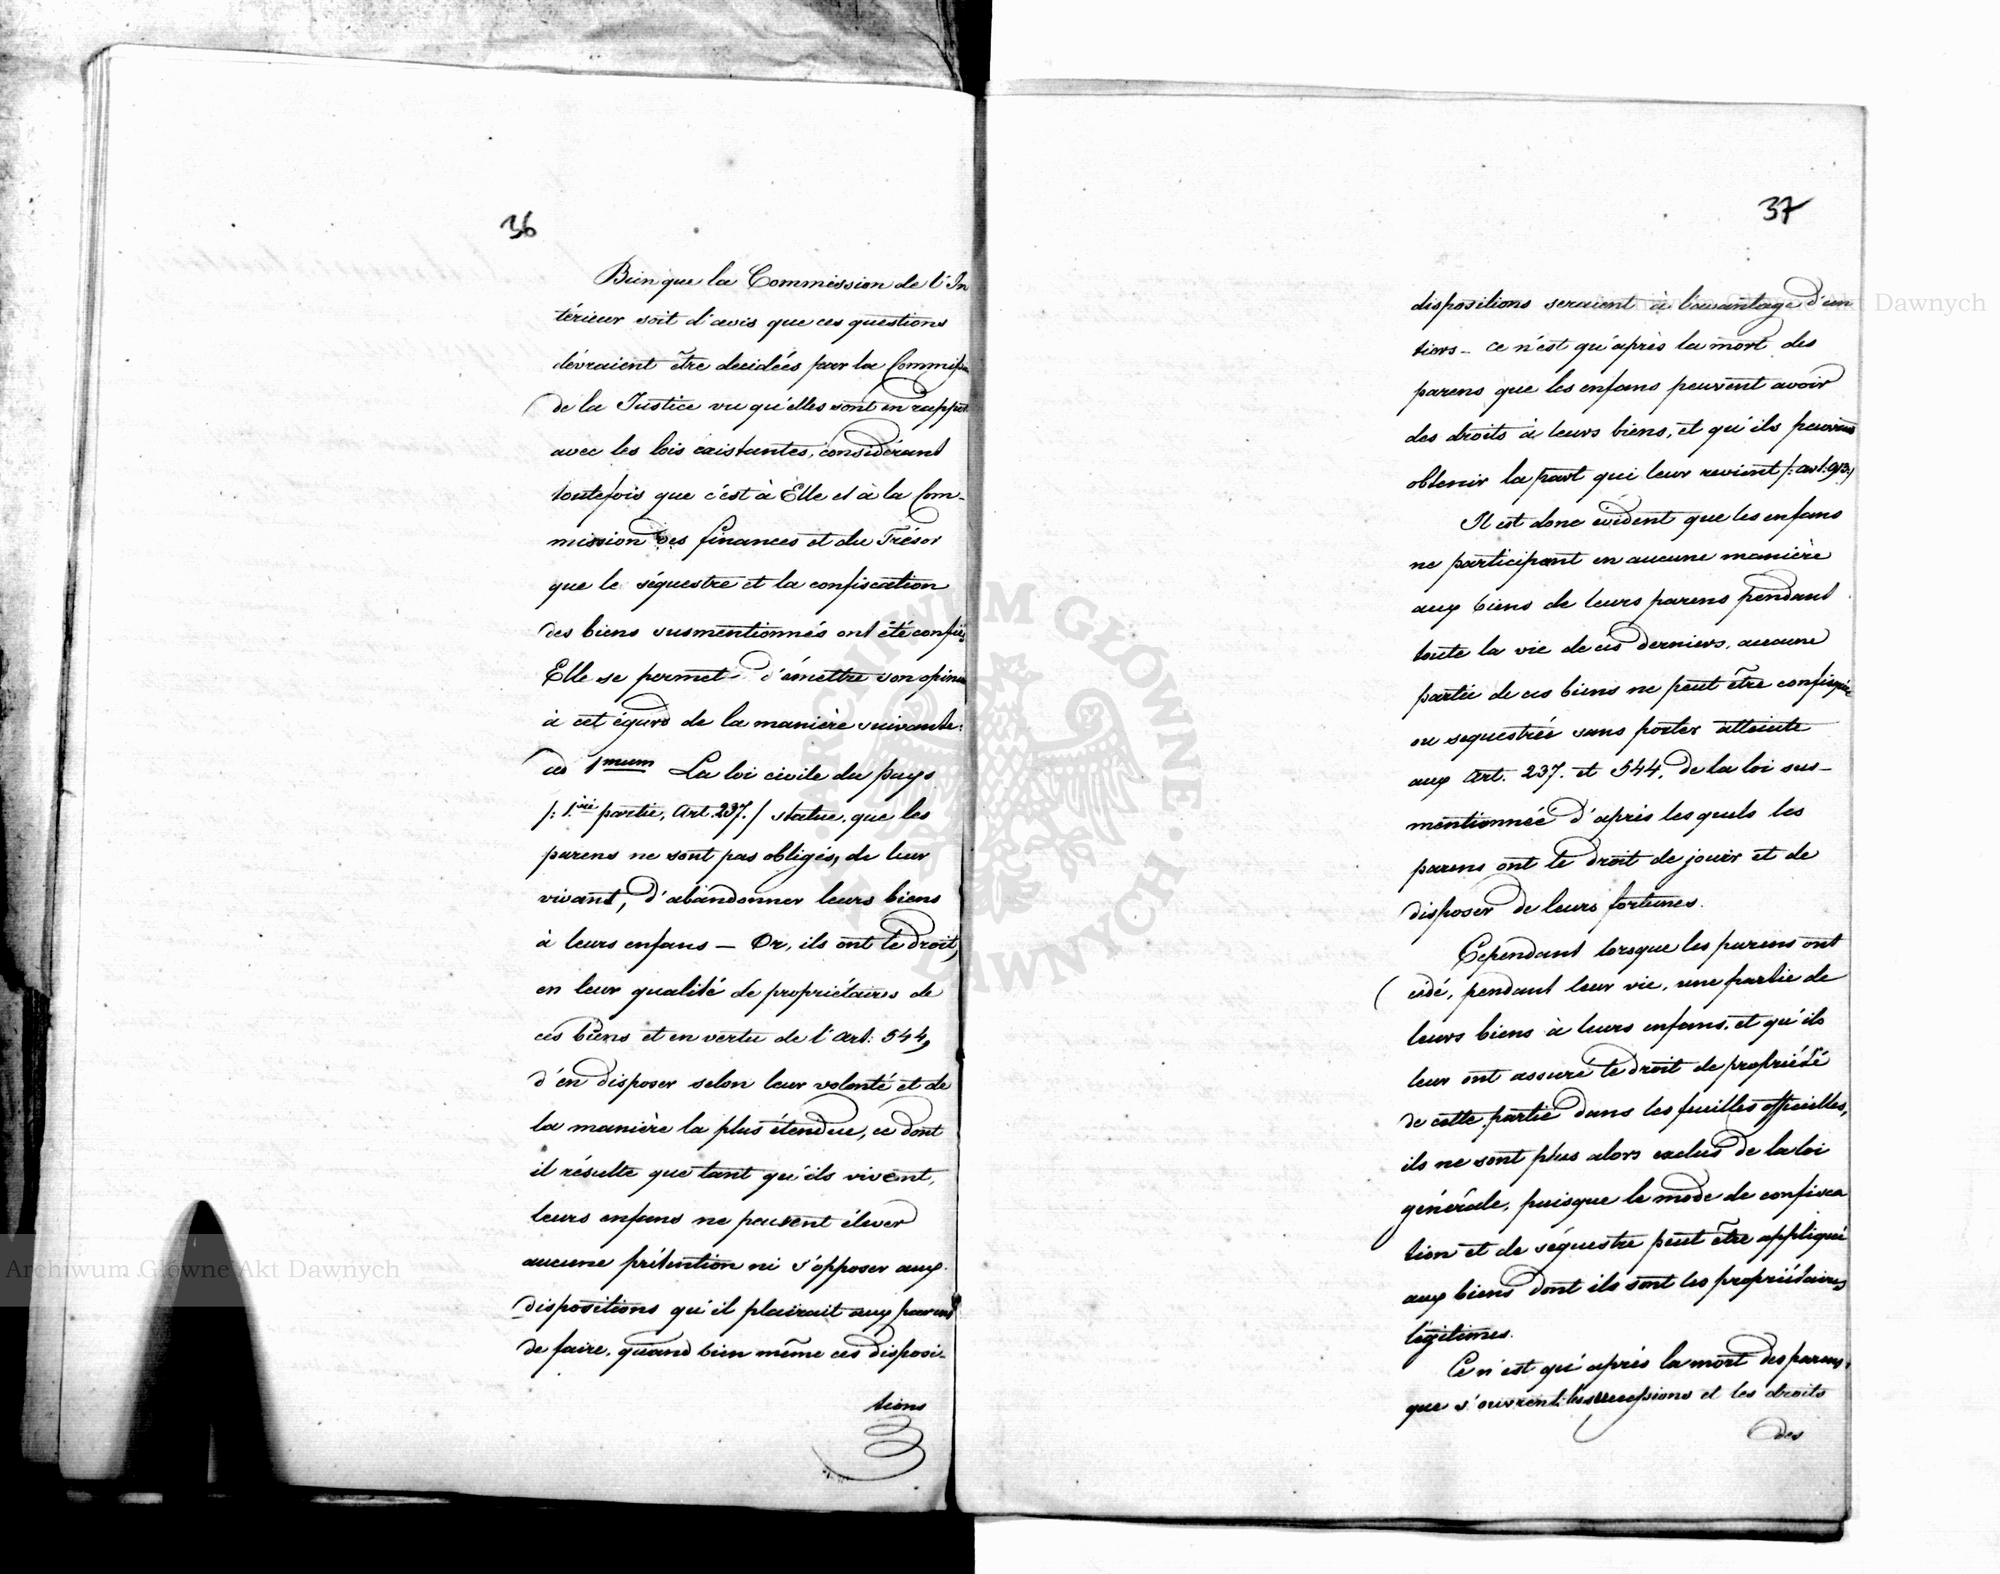 36
Bien que la Commission de l'In
térieur soit d'avis que ces questions
dévraient être decidées par la Commission
de la Justice vu qu'elles sont en rapport
avec les lois existantes, considérant
toutefois que c'est à Elle et à la Com-
mission des finances et du Trésor
que le séquestre et la confiscation
des biens susmentionnés ont été confiés
Elle se permet d'émettre son opinion
à cet égard de la manière suivante:
ad 1mum La loi civile du pays
/: 1.ère partie, Art. 237./ statue, que les
parens ne sont pas obligés, de leur
vivant, d'abandonner leurs biens
à leurs enfans — Or, ils ont le droit,
en leur qualité de propriétaires de
ces biens et en vertu de l'art: 544,
d'en disposer selon leur volonté et de
la manière la plus étendue, ce dont
il résulte que tant qu'ils vivent,
leurs enfans ne peuvent élever
aucune prétention ni s'opposer aux
dispositions qu'il plairait aux parens
de faire, quand bien même ces disposi-
tions
37
dispositions seraient à l'avantage d'un
tiers - ce n'est qu'après la mort des
parens que les enfans peuvent avoir
des droits à leurs biens, et qu'ils peuvent
obtenir la part qui leur revient /: art: 913:/
Il est donc évident que les enfans
ne participant en aucune manière
aux biens de leurs parens pendant
toute la vie de ces derniers, aucune
partie de ces biens ne peut être confisquée
ou sequestrée sans porter atteinte
aux Art. 237. et 544, de la loi sus-
mentionnée d'après lesquels les
parens ont le droit de jouir et de
disposer de leurs fortunes.
Cependant lorsque les parens ont
cédé, pendant leur vie, une partie de
leurs biens à leurs enfans, et qu'ils
leur ont assuré le droit de propriété
de cette partie dans les feuilles officielles,
ils ne sont plus alors exclus de la loi
générale, puisque le mode de confisca
tion et de séquestre peut être appliqué
aux biens dont ils sont les propriétaires
légitimes.
Ce n'est qu'après la mort des parens,
que s'ouvrent les successions et les droits
des
Archiwum Główne Akt Dawnych
Archiwum Główne Akt Dawnych
ARCHIWUM GŁÓWNE AKT DAWNYCH